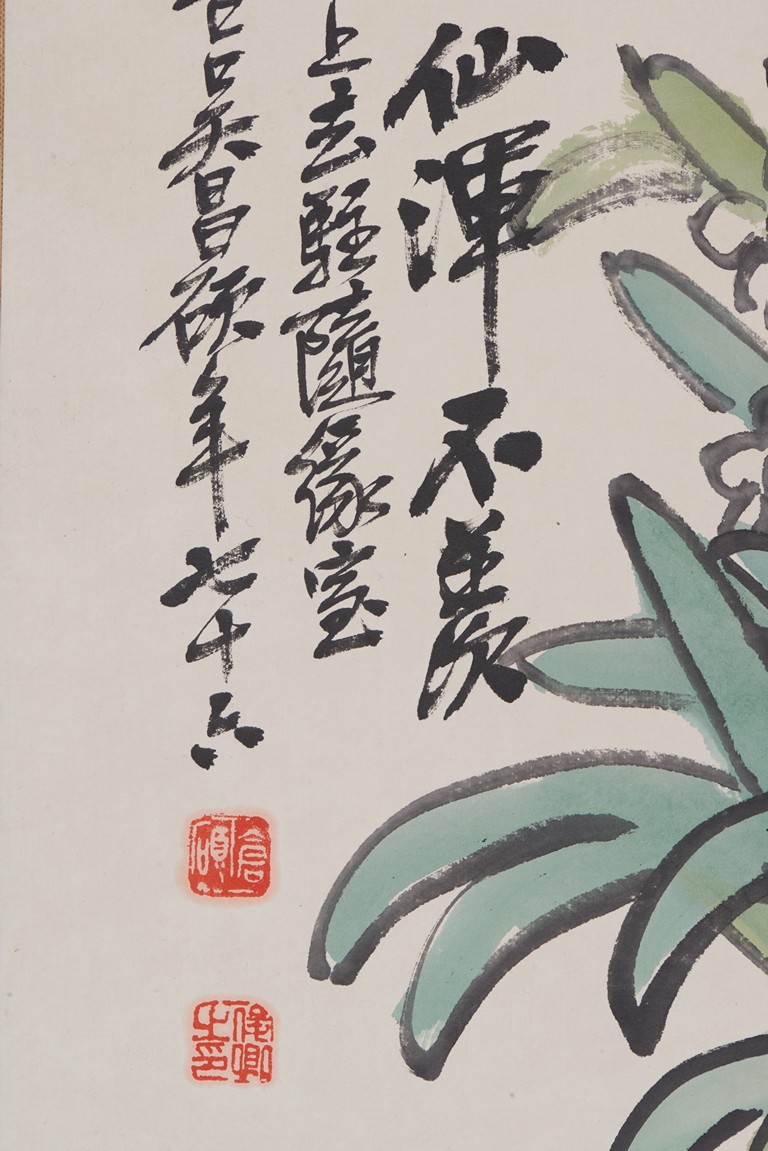 仙渾不羨
上去駐隨緣室
吉吳昌碩年七十六
倉碩
俊卿之印